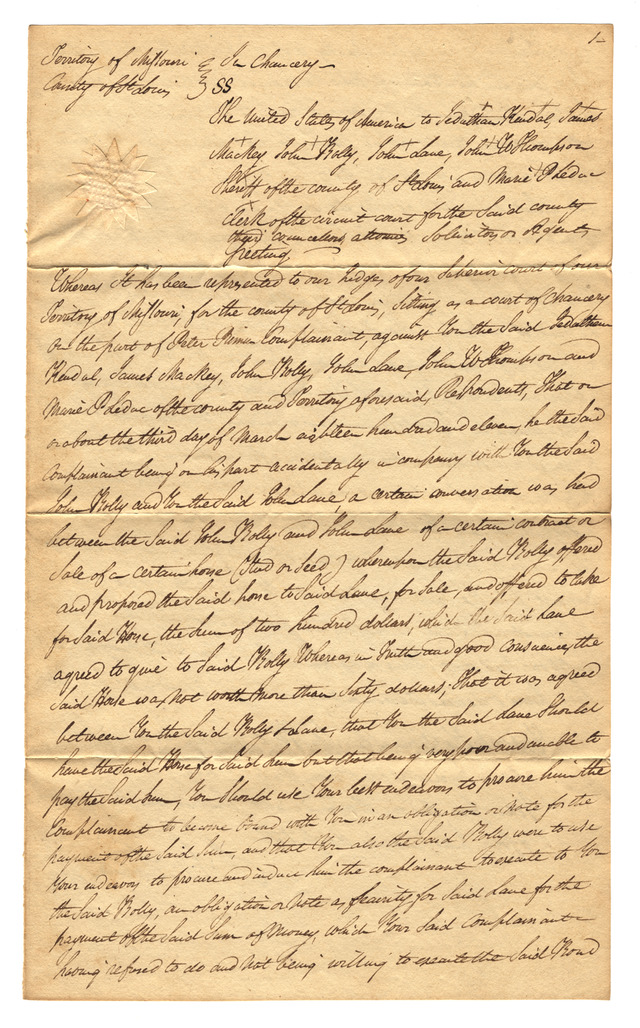 1
Territory of Missouri } In Chancery
County of St Louis } SS
The United States of America to Jedathan Kendal, James
Mackey, John Kolly, John Lane, John W Thompson
Sheriff of the county of St Louis and Marie P. Leduc
Clerk of the circuit court for the said county
their councellors, attornies Solicitors or Agents
Greeting
Whereas It has been represented to our Judges of our Superior court of our
Territory of Missouri, for the county of St Louis, Sitting as a court of Chancery
On the part of Peter Complainant, against You the Said Jedathan
Kendal, James Mackey, John Kolly, John Lane, John W Thompson and
Marie P. Leduc of the county and Territory aforesaid, Respondents, That on
or about the third day of March eighteen hundred and eleven, he the said
Complainant being on his part accidentally in company with You the Said
John Kolly and You the Said John Lane a certain conversation was had
between the Said John Kolly and John Lane of a certain contract or
Sale of a certain horse (Stud or Seed) whereupon the Said Kolly offered
and proposed the Said horse to Said Lane, for Sale, and offered to take
for Said Horse, the Sum of two hundred dollars, which the Said Lane
agreed to give to Said Kolly Whereas in Truth and good conscience, the
Said Horse was Not worth More than Sixty dollars; That it was agreed
between You the Said Kolly & Lane, that You the Said Lane Should
have the Said Horse for Said Sum but that being very poor and unable to
pay the Said Sum, You Should use Your best endeavors to procure him the
Complainant to become bound with You in an obligation or Note for the
payment of the Said Sum, and that You also the Said Kolly were to use
Your endeavors to procure and induce him the complainant to execute to You
the Said Kolly, an obligation or Note as Security for Said Lane for the
payment of the Said Sum of Money, which Your Said Complainant
having refused to do and Not being willing to execute the Said Bond